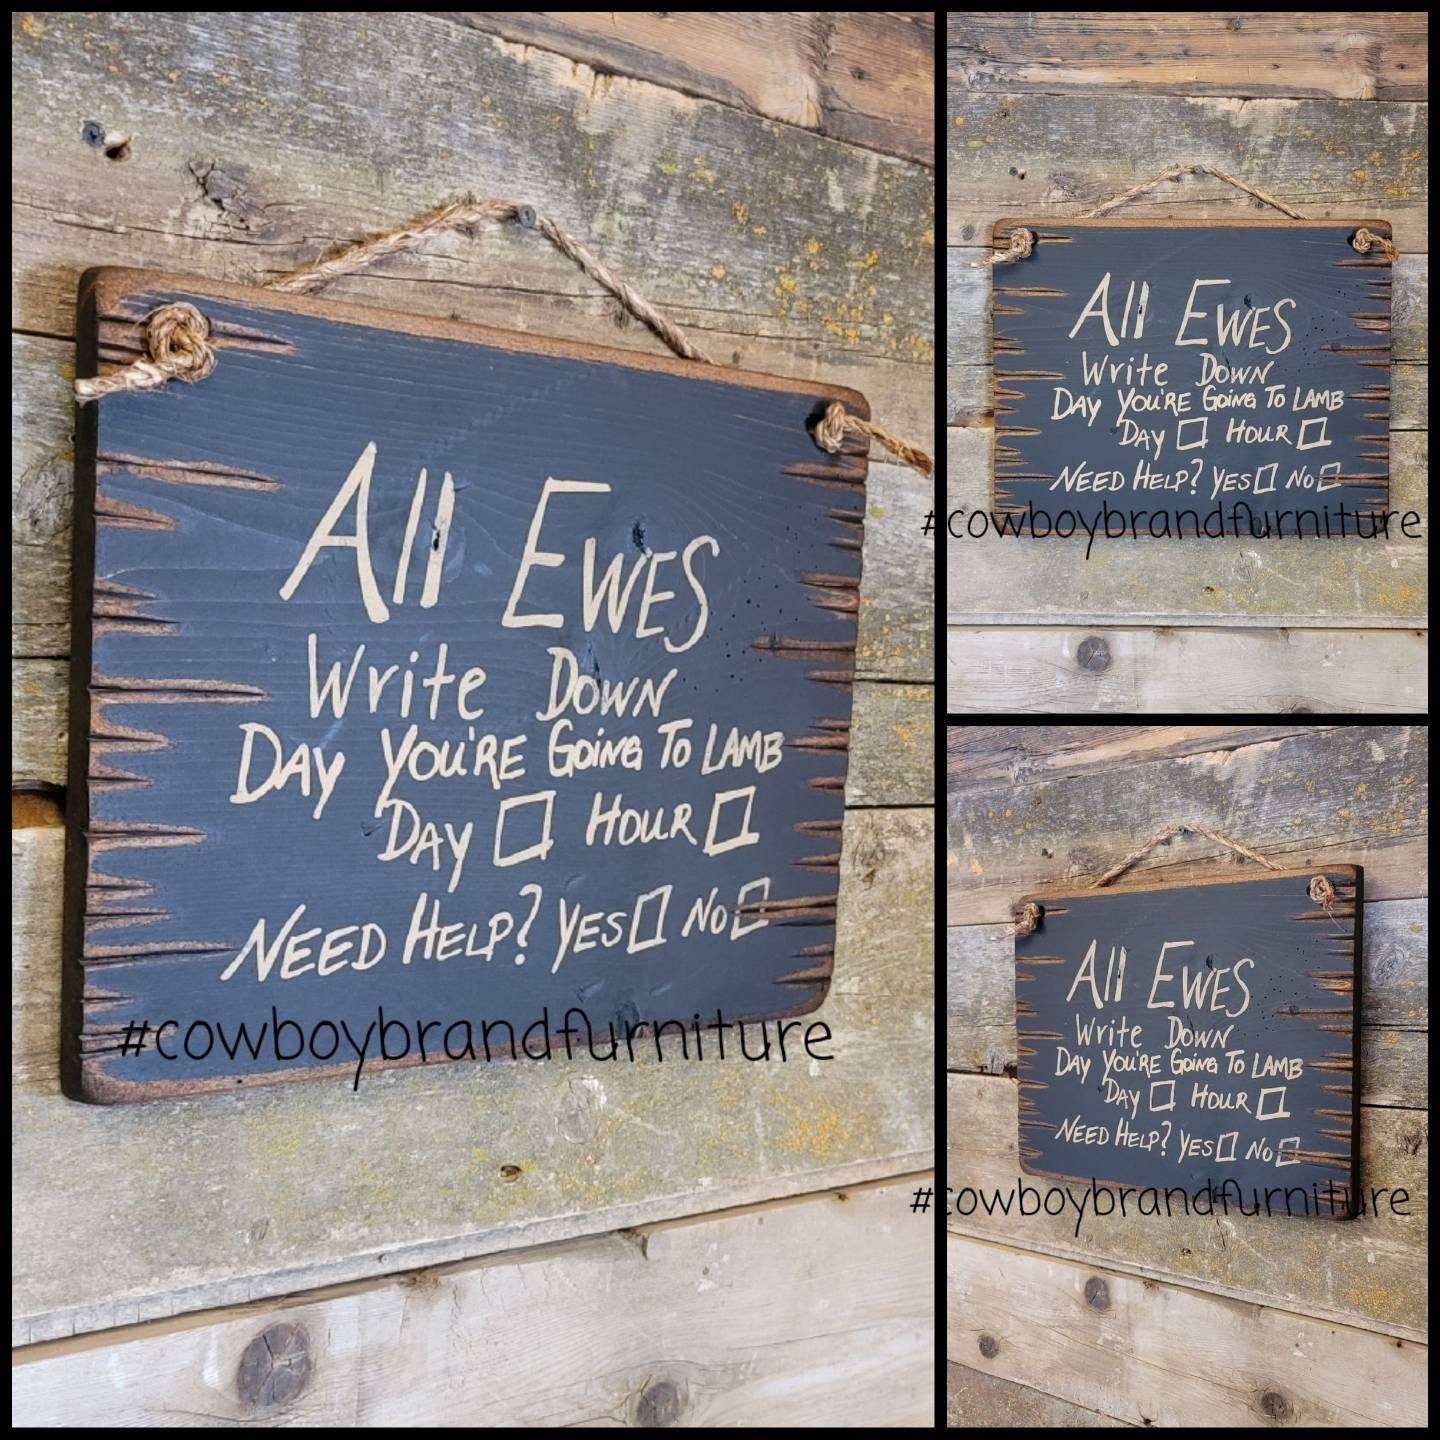 All Ewes
Write Down
Day You're Going To Lamb
Day Hour
Need Help? Yes No
#cowboybrandfurniture
All Ewes
Write Down
Day You're Going To Lamb
Day Hour
Need Help? Yes No
#cowboybrandfurniture
All Ewes
Write Down
Day You're Going To Lamb
Day Hour
Need Help? Yes No
#cowboybrandfurniture